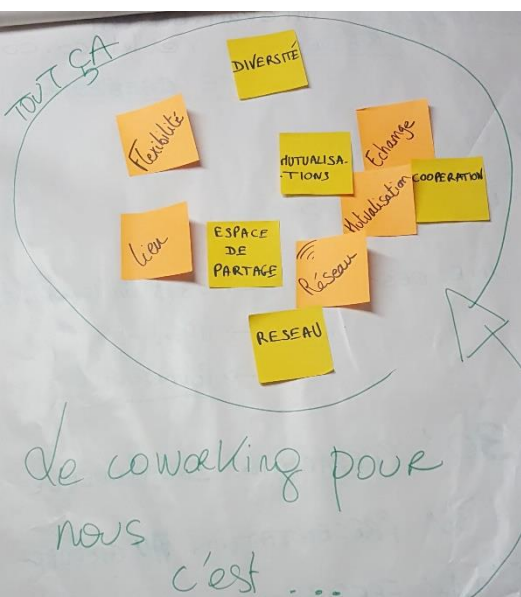 TOUT ÇA
DIVERSITÉ
Flexibilité
MUTUALISA-
-TIONS
Echange
Mutualisation
COOPERATION
Lieu
ESPACE
DE
PARTAGE
Réseau
RESEAU
Le coworking pour
nous
c'est ...